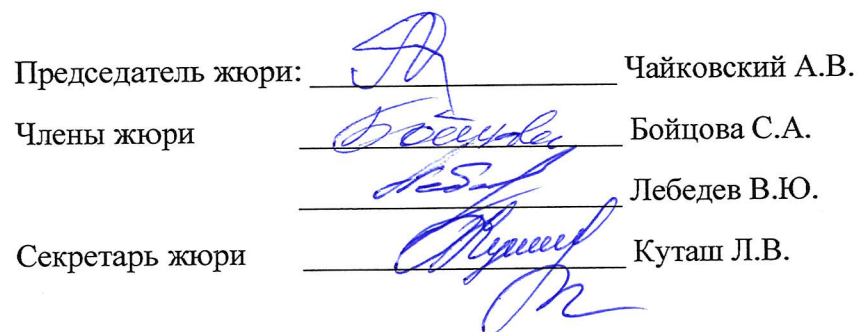 Председатель жюри: Чайковский А.В.
Члены жюри Бойцова Бойцова С.А.
Лебедев В.Ю.
Секретарь жюри Куташ Л.В.